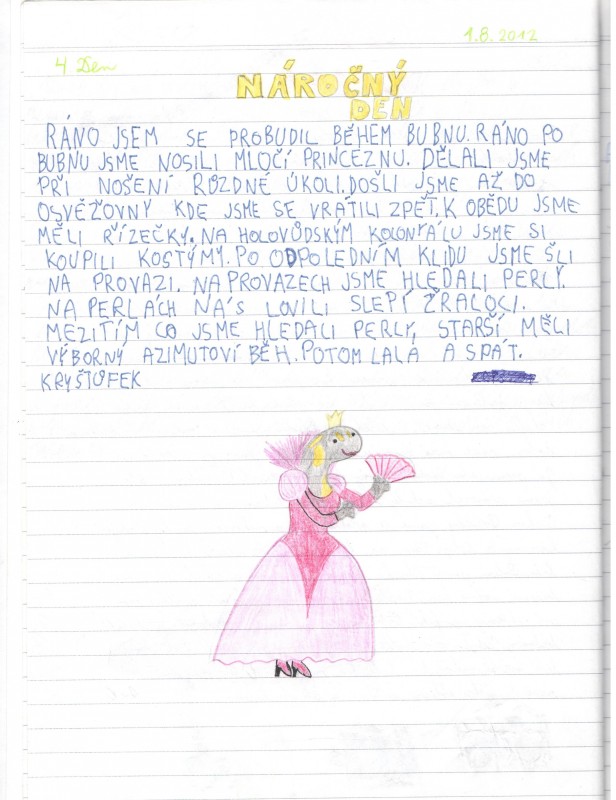 1.8.2012
4 Den
NÁROČNÝ
DEN
RÁNO JSEM SE PROBUDIL BĚHEM BUBNU. RÁNO PO
BUBNU JSME NOSILI MLOČÍ PRINCEZNU. DĚLALI JSME
PŘI NOŠENÍ RŮZDNÉ ÚKOLI. DOŠLI JSME AŽ DO
OSVĚŽOVNY KDE JSME SE VRÁTILI ZPĚT. K OBĚDU JSME
MĚLI ŘÍZEČKY. NA HOLOVŮDSKÝM KOLONYÁLU JSME SI
KOUPILI KOSTÝMY. PO ODPOLEDNÍM KLIDU JSME ŠLI
NA PROVAZI. NA PROVAZECH JSME HLEDALI PERLY.
NA PERLÁCH NÁS LOVILI SLEPÍ ŽRALOCI.
MEZITÍM CO JSME HLEDALI PERLY, STARŠÍ MĚLI
VÝBORNÝ AZIMUTOVÍ BĚH. POTOM LALA A SPÁT.
KRYŠTŮFEK